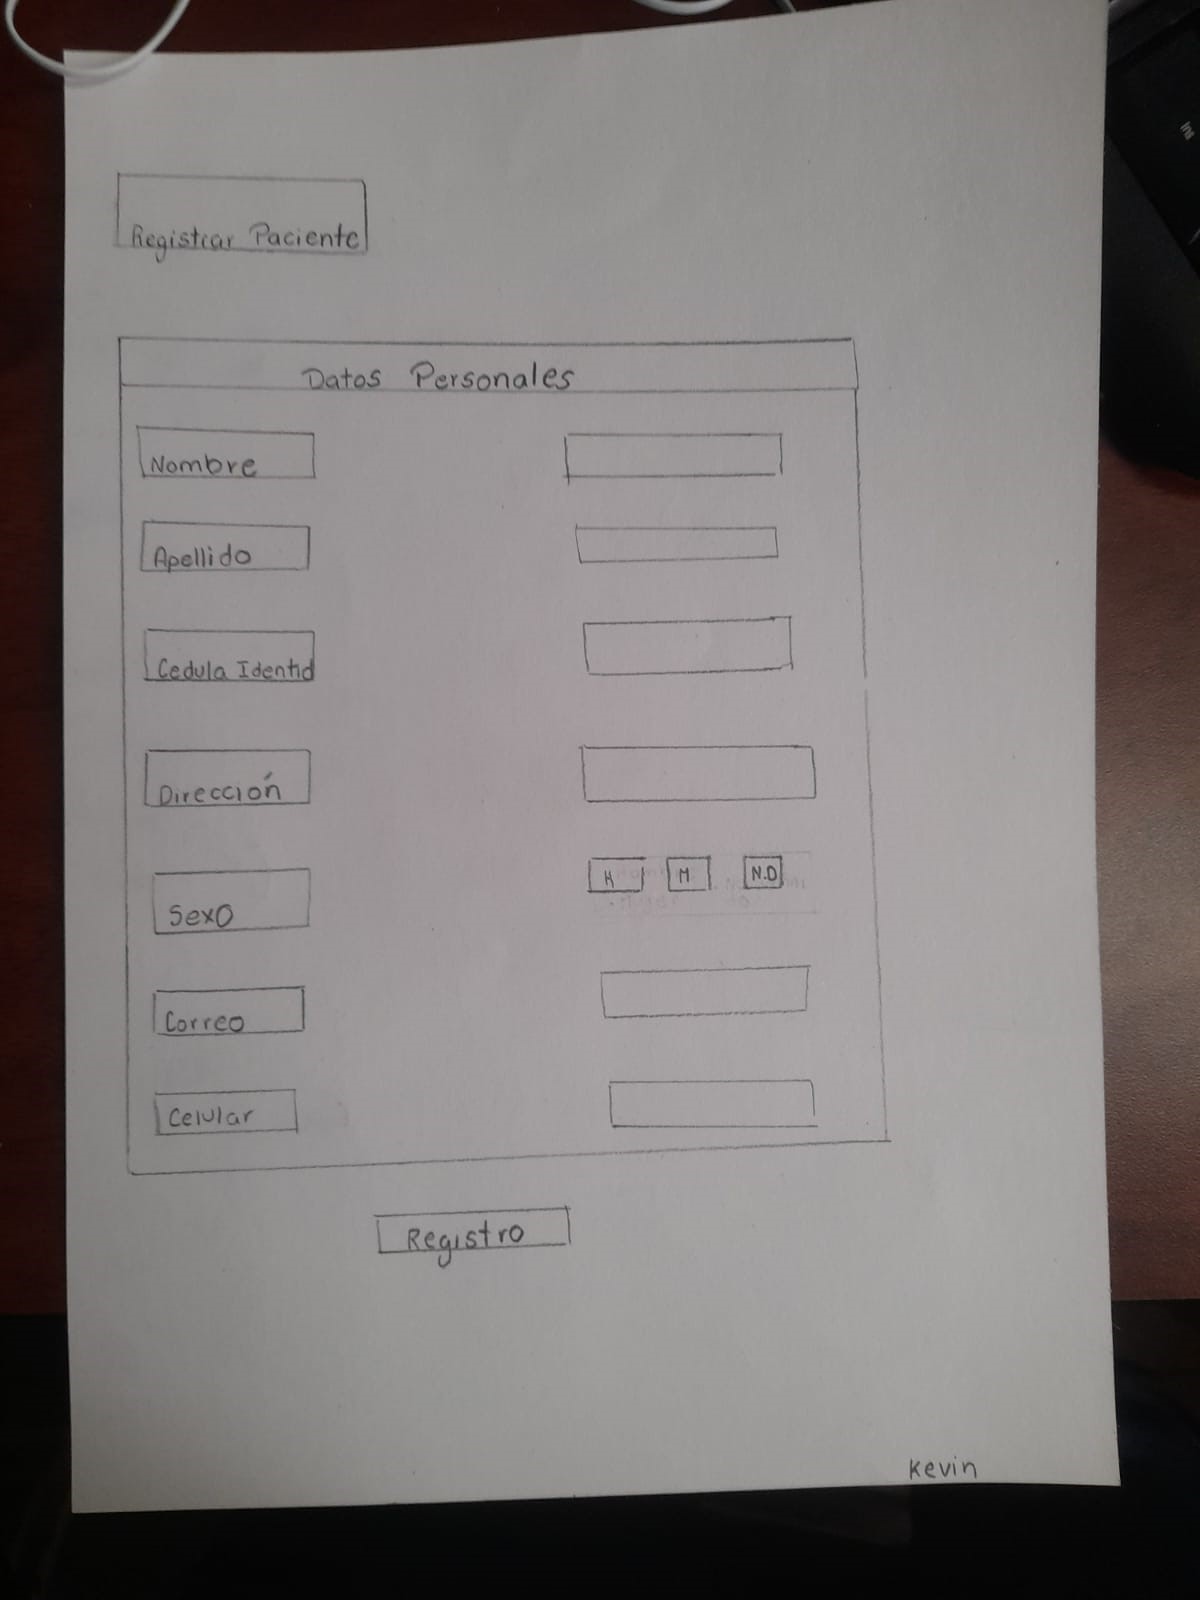 Registrar Paciente
Datos Personales
Nombre
Apellido
Cedula Identid
Dirección
Sexo
H M N.D
Correo
Celular
Registro
Kevin